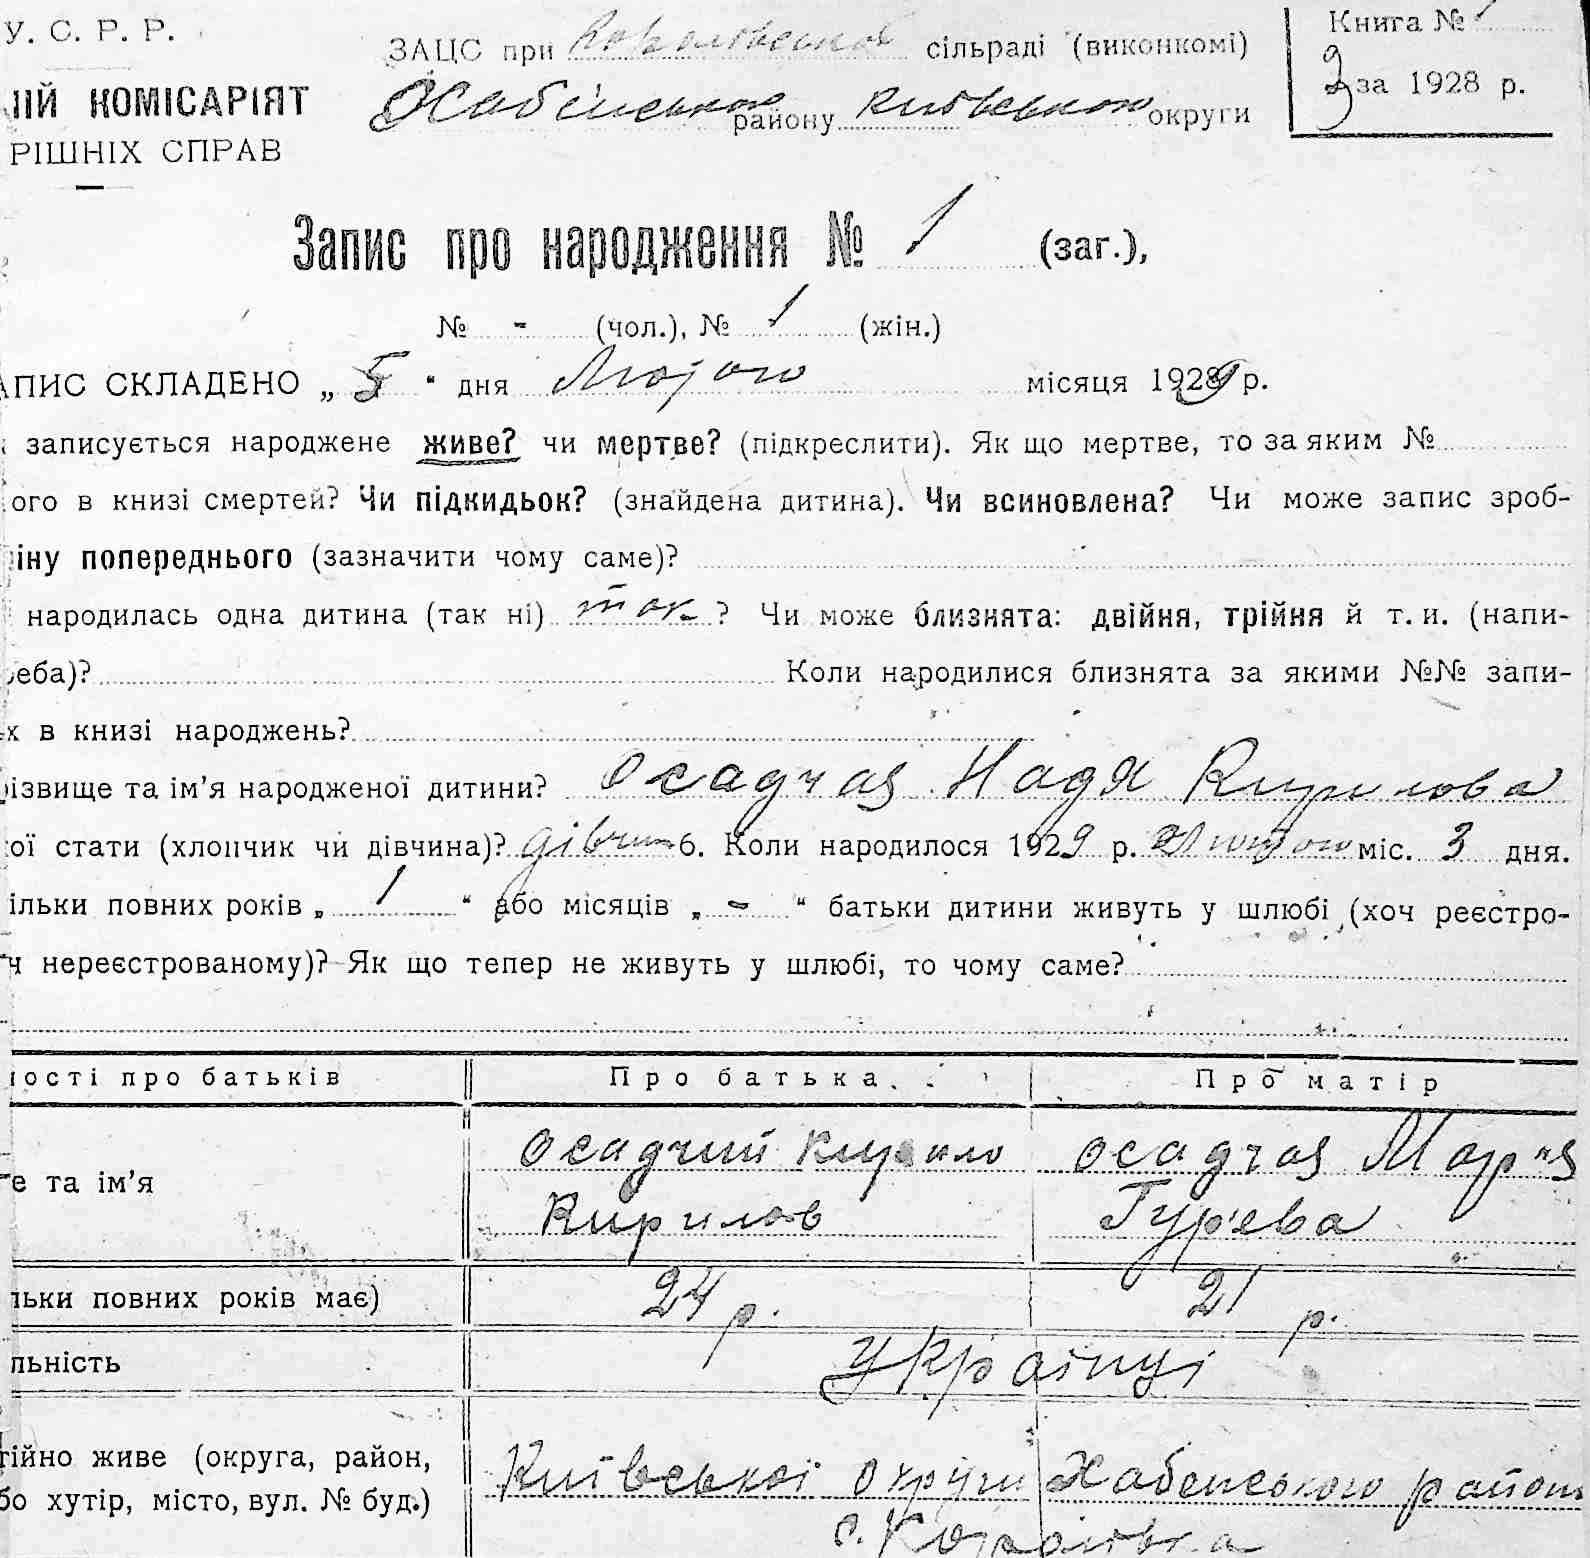 У. С. Р. Р.
ЗАЦС при Королівській сільраді (виконкомі)
Книга № 1
НІЙ КОМІСАРІЯТ
Хабенського району Київською округи
за 1928 р.
РІШНІХ СПРАВ
Запис про народження № 1 (заг.),
№ - (чол.), № 1 (жін.)
АПИС СКЛАДЕНО „ 5 “ дня Лютого місяця 1929 р.
записується народжене живе? чи мертве? (підкреслити). Як що мертве, то за яким №
ого в книзі смертей? Чи підкидьок? (знайдена дитина). Чи всиновлена? Чи може запис зроб-
іну попереднього (зазначити чому саме)?
народилась одна дитина (так ні) так ? Чи може близнята: двійня, трійня й т. и. (напи-
еба)? Коли народилися близнята за якими №№ запи-
х в книзі народжень?
різвище та ім’я народженої дитини? Осадчая Надя Кирилова
ої стати (хлопчик чи дівчина)? дівчина 6. Коли народилося 1929 р. Лютого міс. 3 дня.
ільки повних років „ 1 “ або місяців „ - “ батьки дитини живуть у шлюбі (хоч реєстро-
ч нереєстрованому)? Як що тепер не живуть у шлюбі, то чому саме?
ості про батьків Про батька Про матір
е та ім’я Осадчий Кирило Осадчая Мария
Кирилов Гурева
льки повних років має) 24 р. 21 р.
льність Українці
тійно живе (округа, район, Київської округи Хабенського району
бо хутір, місто, вул. № буд.) с. Королівка